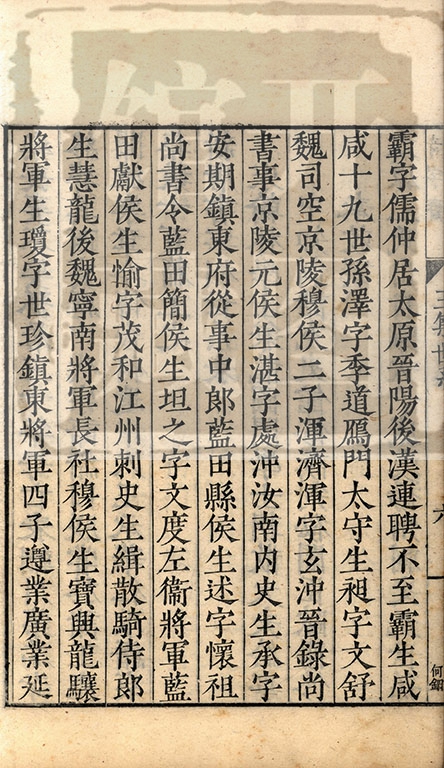 霸字儒仲居太原晉陽後漢連聘不至霸生咸
咸十九世孫澤字季道鴈門太守生昶字文舒
魏司空京陵穆侯二子渾濟渾字玄沖晉錄尚
書事京陵元侯生湛字處沖汝南内史生承字
安期鎮東府從事中郎藍田縣侯生述字懷祖
尚書令藍田簡侯生坦之字文度左衞將軍藍
田獻侯生愉字茂和江州刺史生緝散騎侍郎
生慧龍後魏寧南將軍長社穆侯生寶興龍驤
將軍生瓊字世珍鎮東將軍四子遵業廣業延
六